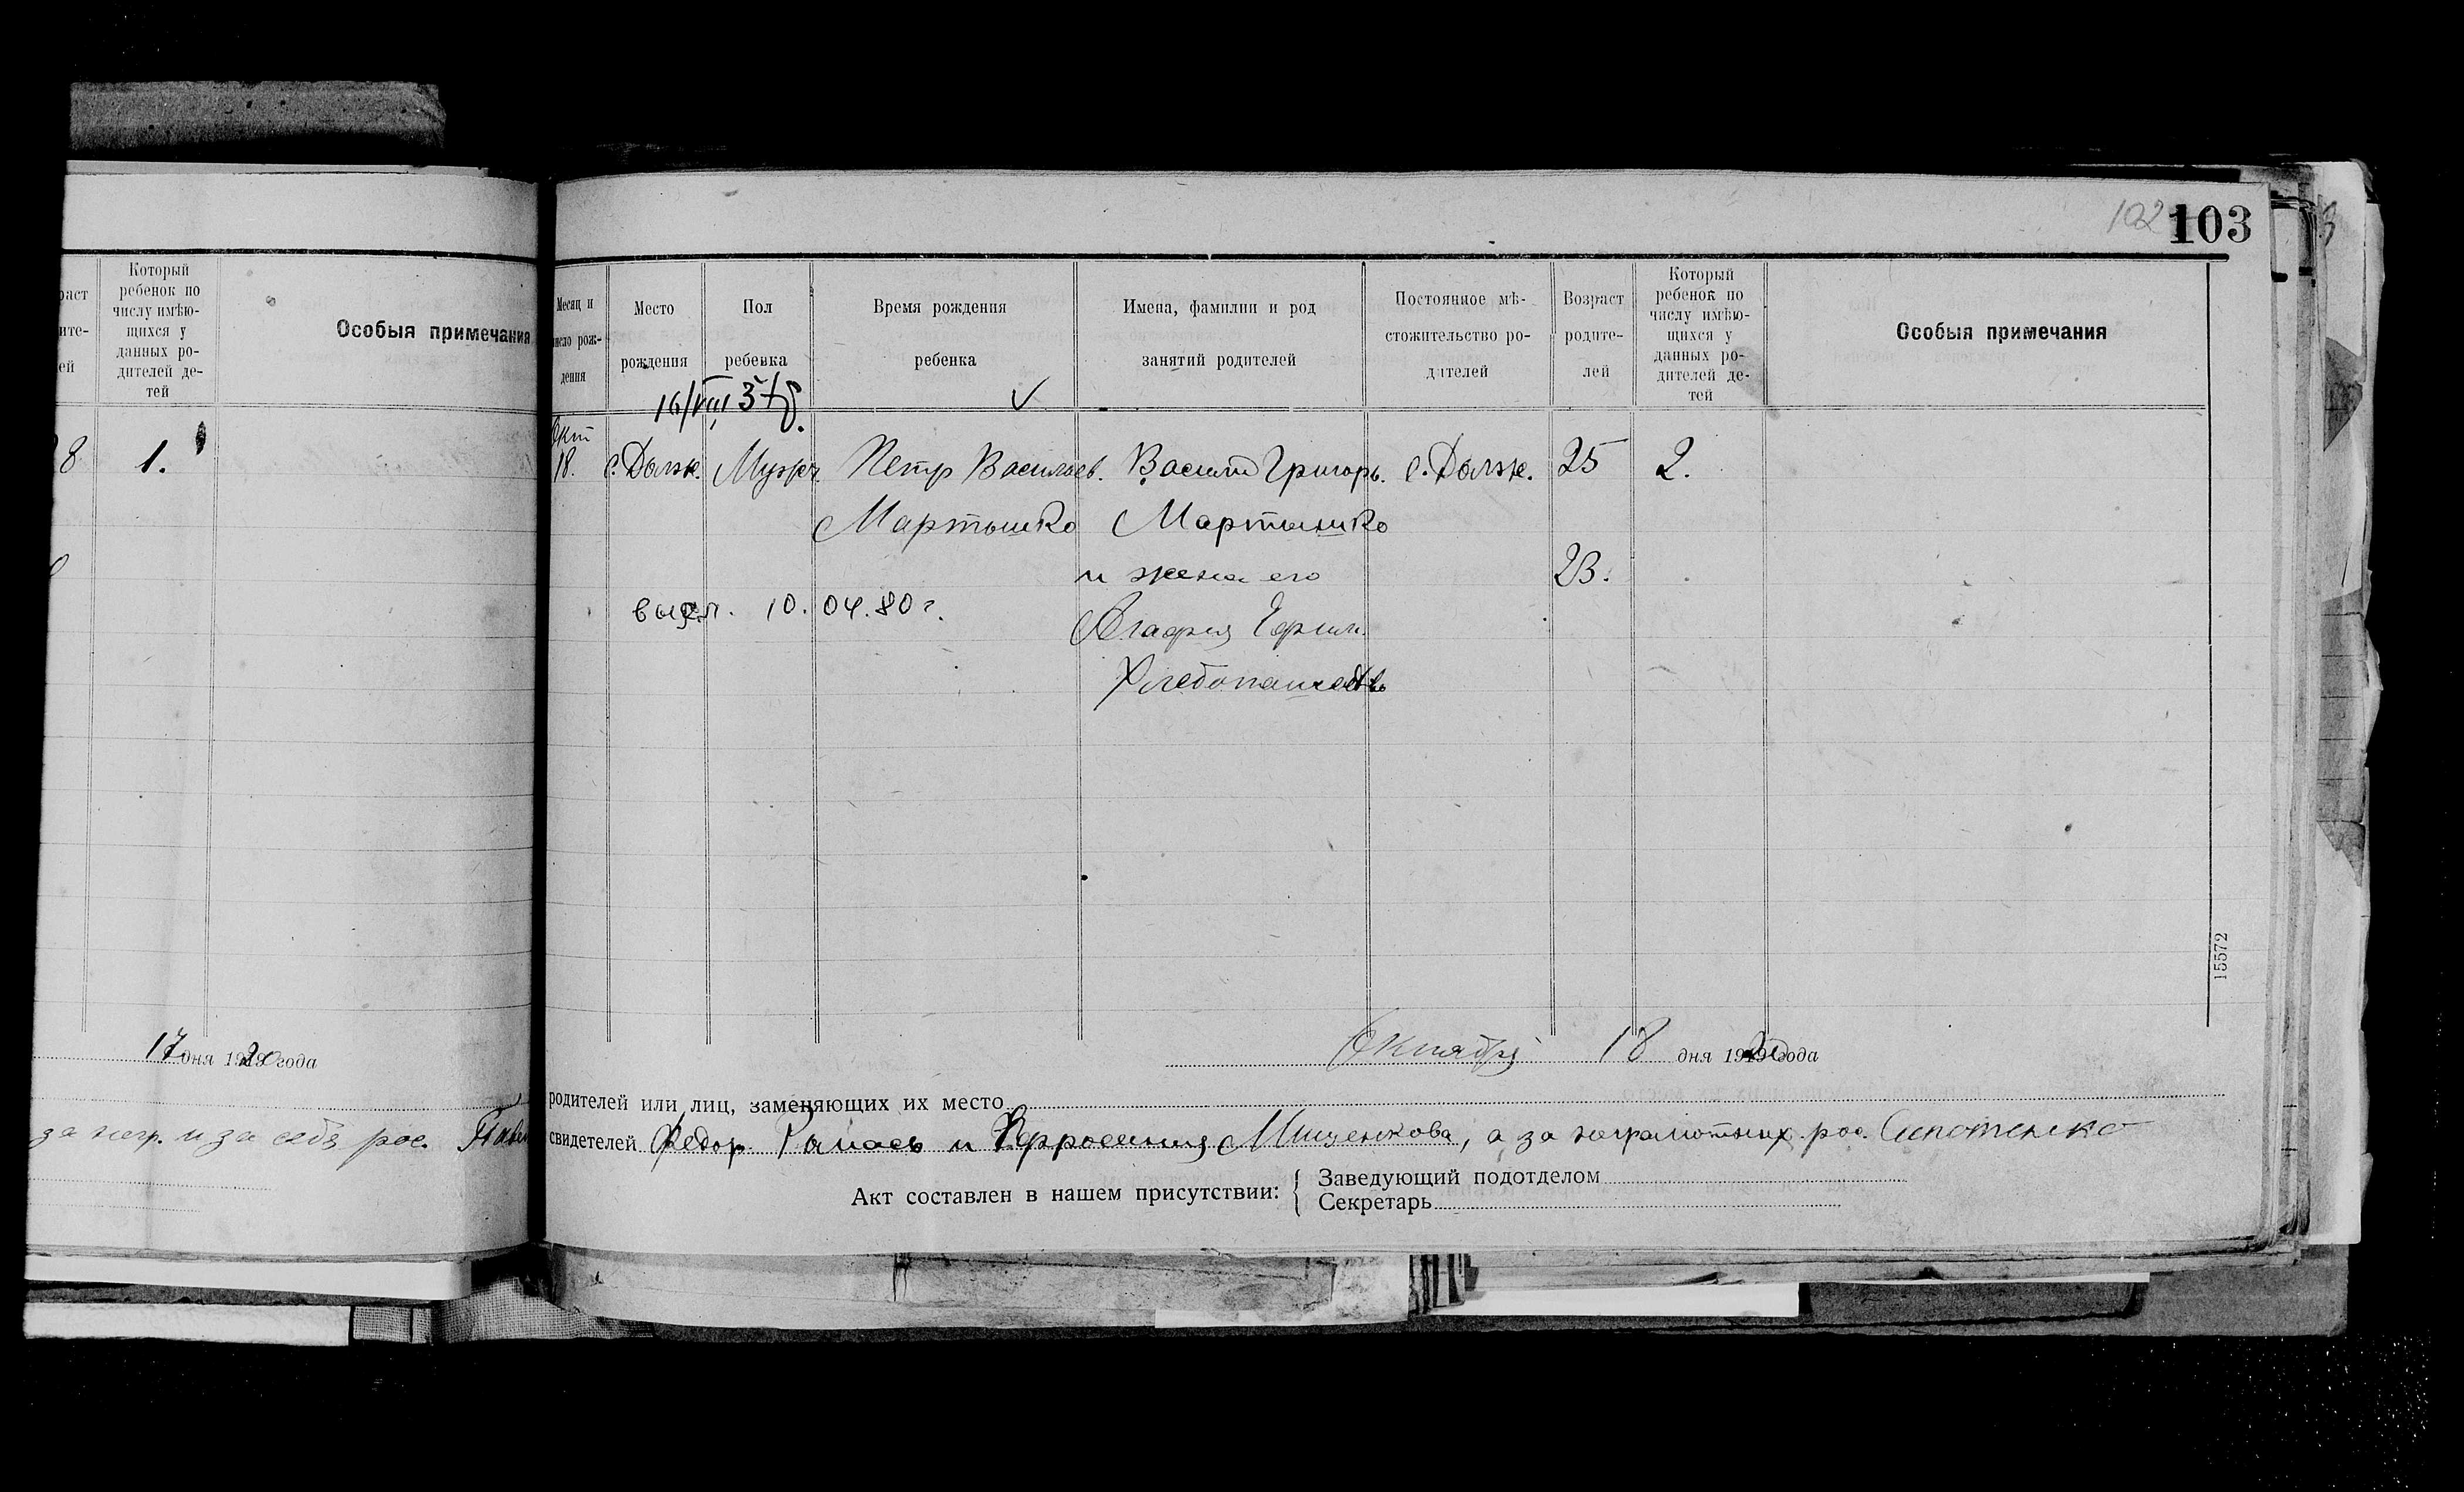 раст
ите-
ей
Который
ребенок по
числу имѣю-
щихся у
данных ро-
дителей де-
тей
Особыя примечания
8 1.
17 дня 1920 года
за негр. и за себя рос.
102 103
Месяц и
число рож-
дения
Место
рождения
Пол
ребенка
Время рождения
ребенка
Имена, фамилии и род
занятий родителей
Постоянное мѣ-
стожительство ро-
дителей
Возраст
родите-
лей
Который
ребенок по
числу имѣю-
щихся у
данных ро-
дителей де-
тей
Особыя примечания
16/VIII 37 ✓
Окт
18. с. Долж. Мужч. Петр Васильев. Василий Григорь. с. Долж. 25 2.
Мартышко Мартышко
и жена его 23.
высл. 10.04.80 г.
Агафия Ефим.
Хлебопашество
15572
Октября 18 дня 1920 года
родителей или лиц, заменяющих их место
свидетелей Федор и Мищенкова, а за неграмотных рос.
Акт составлен в нашем присутствии: { Заведующий подотделом
Секретарь